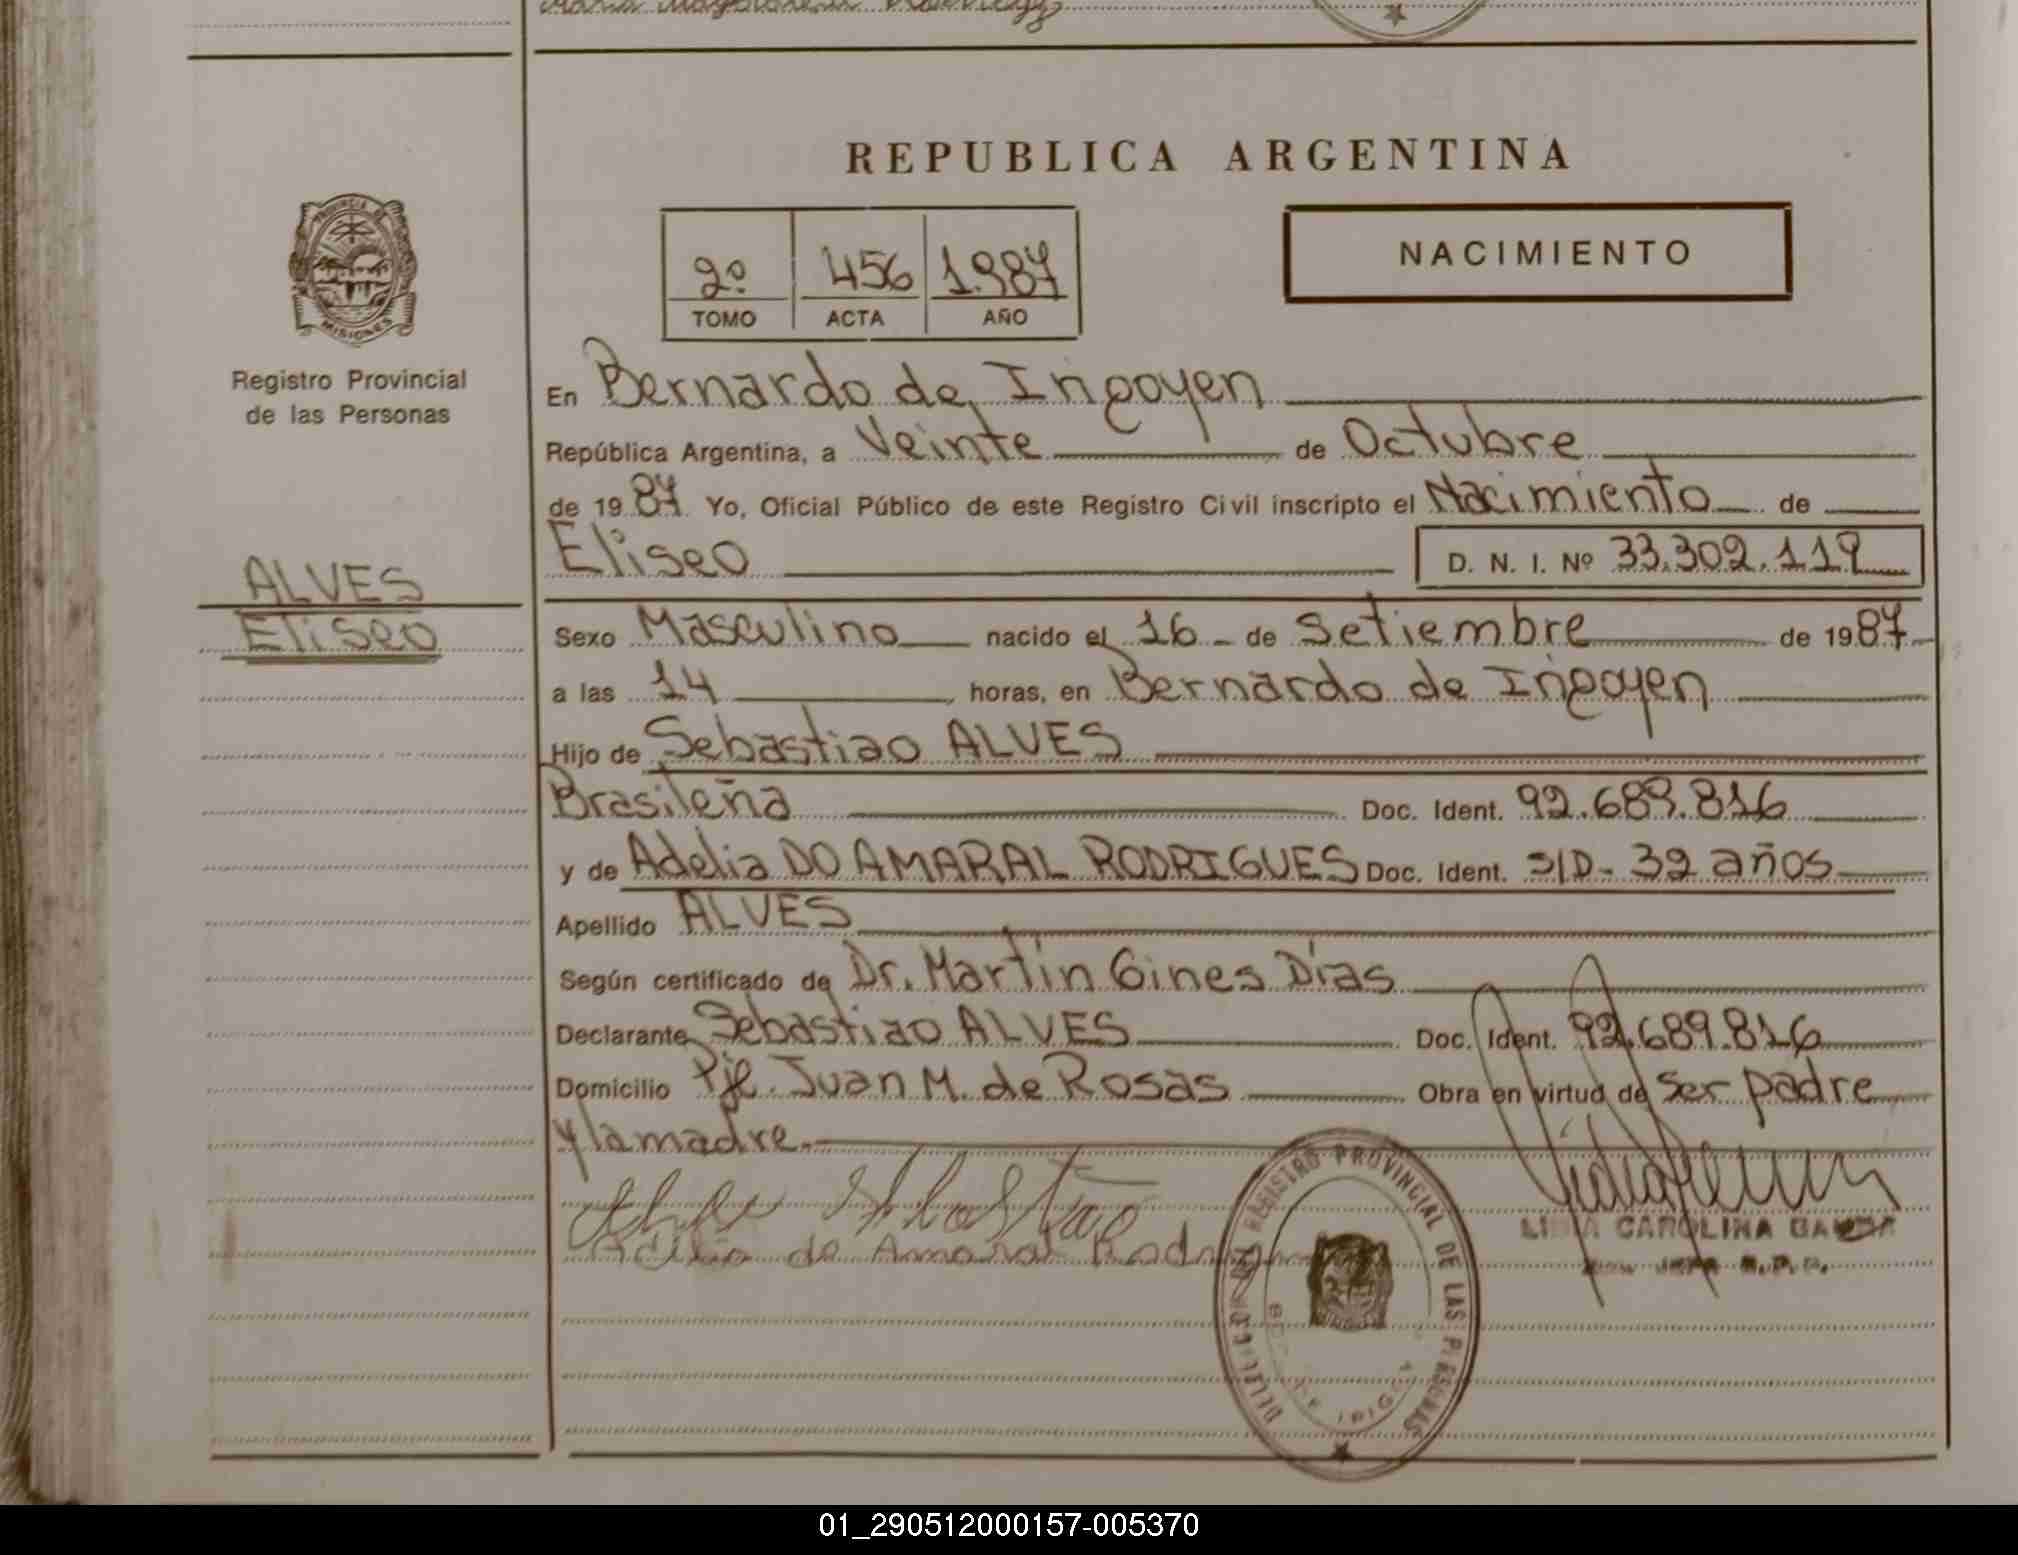 REPUBLICA ARGENTINA
PROVINCIA DE
MISIONES
Registro Provincial
de las Personas
2º 456 1.987
TOMO ACTA AÑO
NACIMIENTO
En Bernardo de Irigoyen
República Argentina, a Veinte de Octubre
de 1987 Yo, Oficial Público de este Registro Civil inscripto el Nacimiento de
Eliseo D. N. I. Nº 33.302.119
ALVES
Eliseo
Sexo Masculino nacido el 16 - de Setiembre de 1987
a las 14 horas, en Bernardo de Irigoyen
Hijo de Sebastiao ALVES
Brasileña Doc. Ident. 92.689.816
y de Adelia DO AMARAL RODRIGUES Doc. Ident. S/D - 32 años
Apellido ALVES
Según certificado de Dr. Martin Gines Dias
Declarante Sebastiao ALVES Doc. Ident. 92.689.816
Domicilio Pje. Juan M. de Rosas Obra en virtud de ser padre
y la madre.
REGISTRO PROVINCIAL DE LAS PERSONAS
CAROLINA
01_290512000157-005370